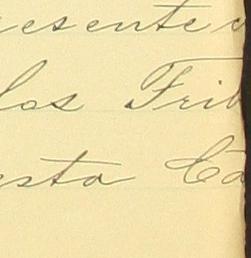 resente
los Trib
esta Ca